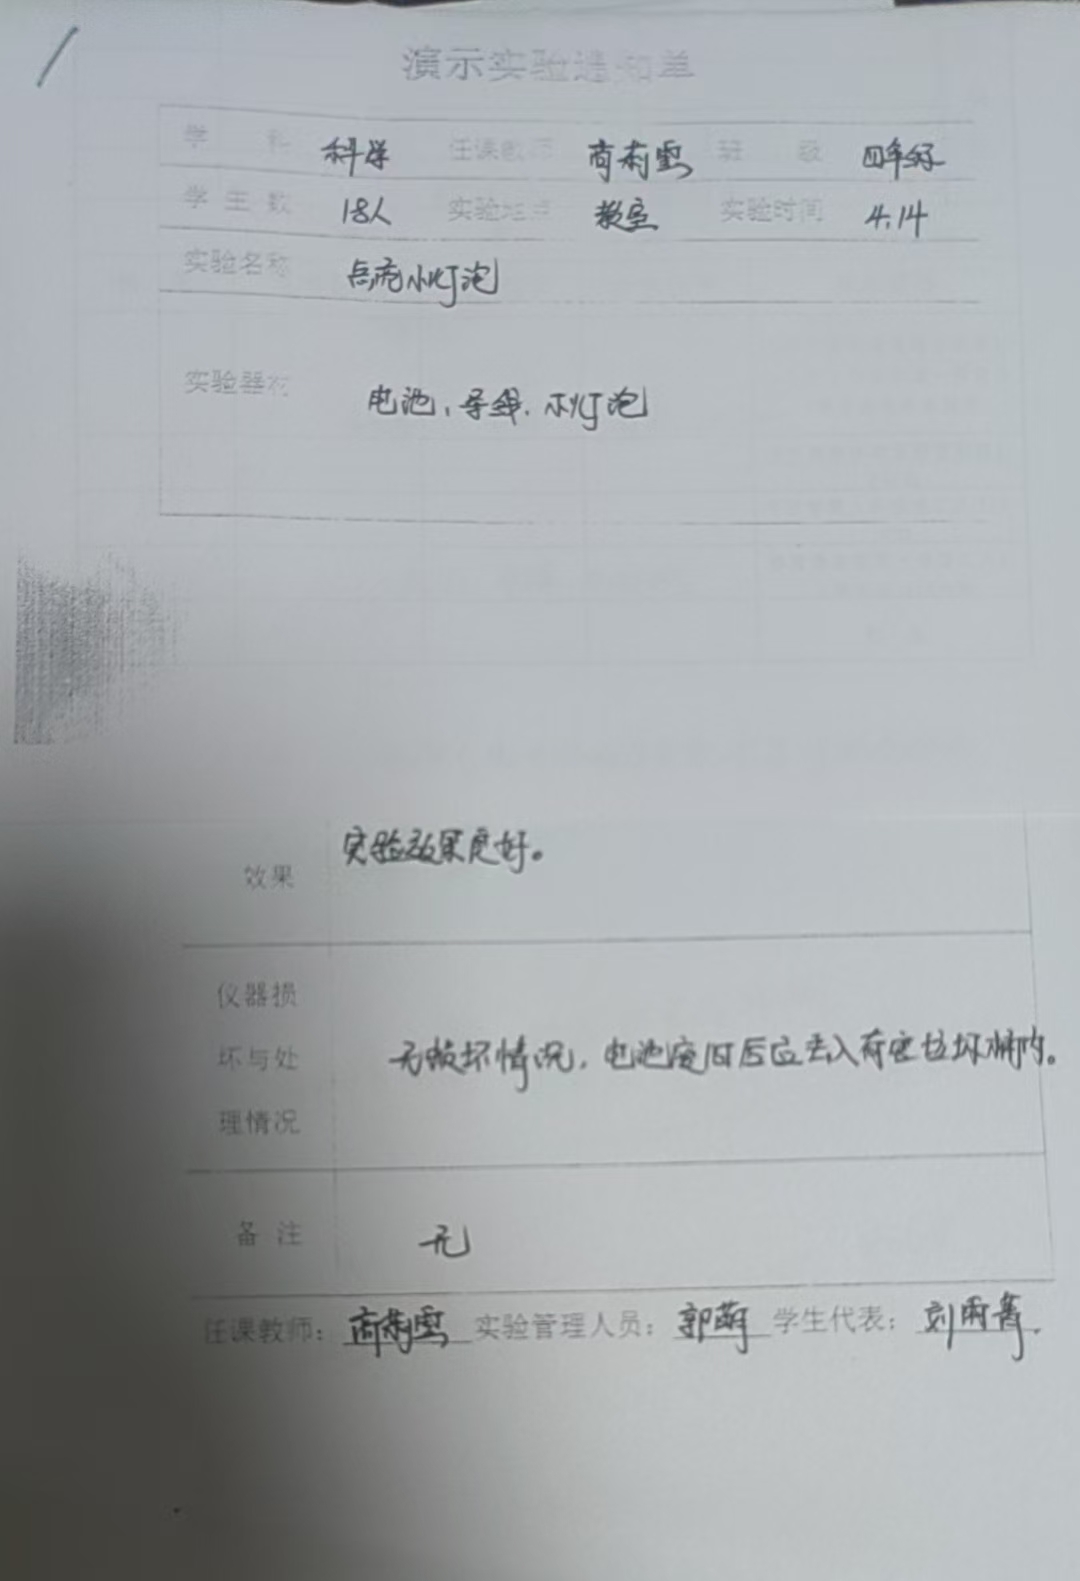 演示实验通知单
学 科 科学 任课教师 商莉雪 班 级 四年级
学生数 18人 实验地点 教室 实验时间 4.14
实验名称 点亮小灯泡
实验器材 电池、导线、小灯泡
效果 实验效果良好。
仪器损
坏与处 无破坏情况,电池废旧后应丢入有害垃圾桶内。
理情况
备 注 无
任课教师: 商莉雪 实验管理人员: 郭萌 学生代表: 刘雨菁